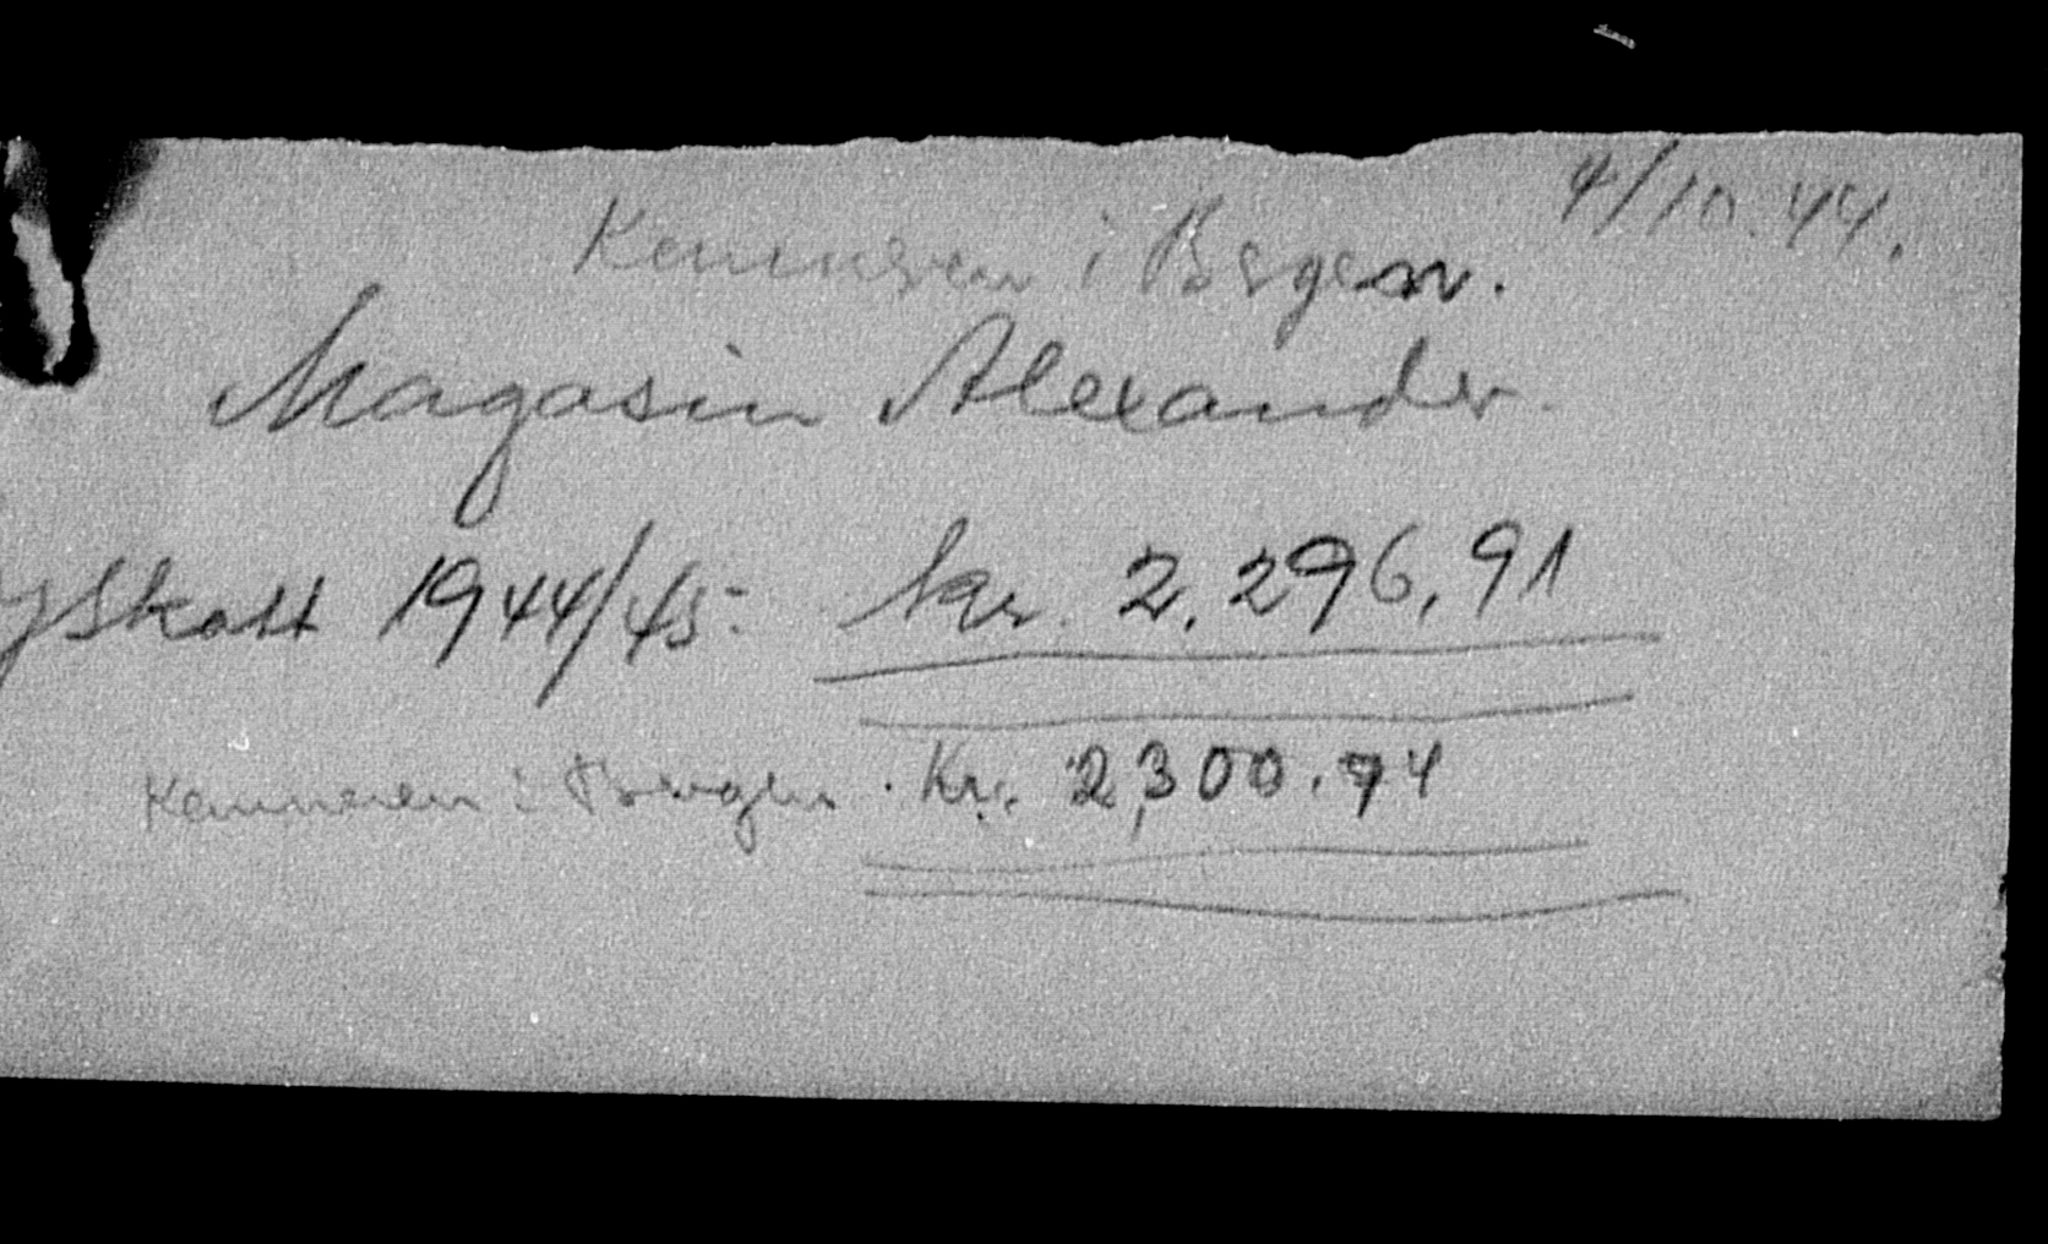 4/10.44.
Kemneren i Bergen.
Magasin Alexander.
Skatt 1944/45: kr. 2.296,91
Kemneren i Bergen. Kr. 2,300.74